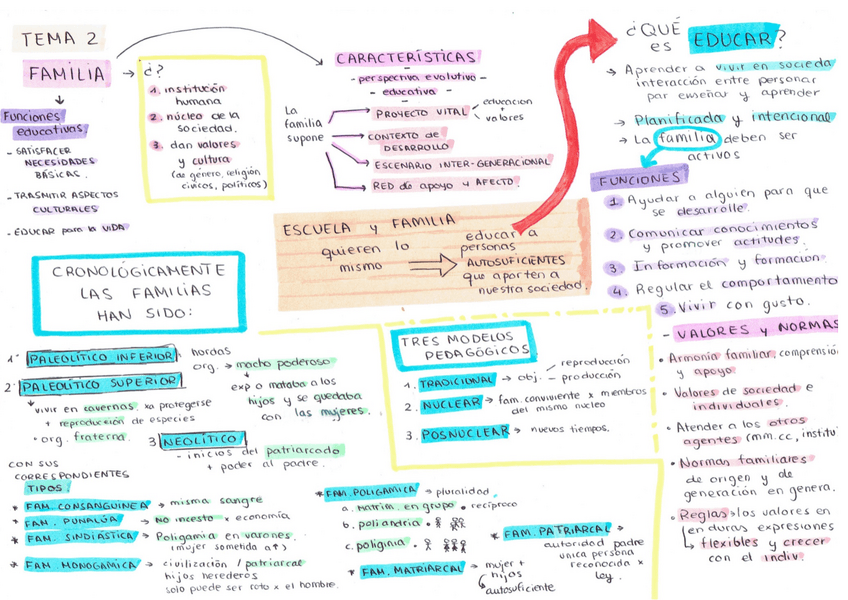 TEMA 2
FAMILIA
→ ¿?
1. institución
humana
2. núcleo de la
sociedad.
3. dan valores
y cultura
(de género, religión
cívicos, políticos)
Funciones
educativas
- SATISFACER
NECESIDADES
BÁSICAS.
- TRASMITIR ASPECTOS
CULTURALES
- EDUCAR para la VIDA
CARACTERÍSTICAS
- perspectiva evolutivo -
- educativa -
La
familia
supone
PROYECTO VITAL
educacion
+
valores
CONTEXTO de
DESARROLLO
ESCENARIO INTER-GENERACIONAL
RED de apoyo y AFECTO.
ESCUELA y FAMILIA
quieren lo
mismo
educar a
personas
AUTOSUFICIENTES
que aporten a
nuestra sociedad.
¿QUÉ
es EDUCAR?
→ Aprender a vivir en socieda
interacción entre personar
par enseñar y aprender
→ Planificada y intencional
→ La familia deben ser
activos
FUNCIONES
1. Ayudar a alguien para que
se desarrolle.
2. Comunicar conocimientos
y promover actitudes.
3. Información y formacion.
4. Regular el comportamiento
5. Vivir con gusto.
- VALORES y NORMAS
• Armonia familiar, comprensió
y apoyo
• Valores de sociedad e
individuales.
• Atender a los otros
agentes (mm.cc., institu
• Normas familiares
de origen y de
generación en genera.
• Reglas → los valores en
enduras expresiones
↳ flexibles y crecer
con el indiv.
CRONOLÓGICAMENTE
LAS FAMILIAS
HAN SIDO:
1. PALEOLÍTICO INFERIOR → hordas
org. → macho poderoso
exp o mataba a los
hijos y se quedaba
con las mujeres.
2. PALEOLÍTICO SUPERIOR
vivir en cavernas xa protegerse
+ reproducción de especies
• org. fraterna.
3 NEOLÍTICO
- inicios del patriarcado
+ poder al padre.
TRES MODELOS
PEDAGÓGICOS
1. TRADICIONAL → obj.
reproducción
- producción
2. NUCLEAR → fam. conviviente x miembros
del mismo nucleo
3. POSNUCLEAR → nuevos tiempos.
CON SUS
CORRESPONDIENTES
TIPOS:
* FAM. CONSANGUINEA → misma sangre
* FAM. PUNALÚA → NO incesto x economía
* FAM. SINDIÁSTICA → Poligamia en varones.
(mujer sometida a↑)
* FAM MONOGAMICA → civilización / patriarcal
hijos herederos
solo puede ser roto x el hombre.
* FAM. POLIGAMICA → pluralidad
a. Matrim. en grupo • recíproco
b. poliandria •
c. poliginia •
* FAM. MATRIARCAL → mujer +
hijos
↳ autosuficiente
* FAM. PATRIARCAL →
autoridad padre
unica persona
reconocida x
ley.